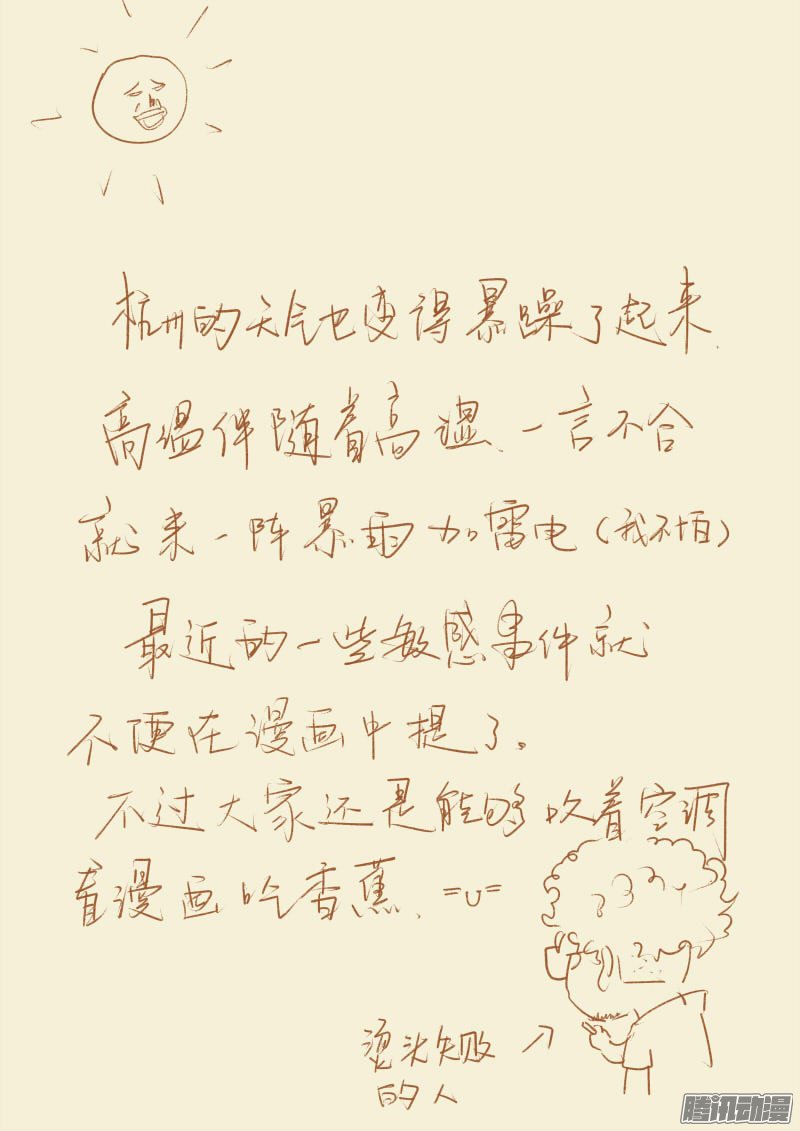 杭州的天气也变得暴躁了起来.
高温伴随着高湿、一言不合
就来一阵暴雨加雷电(我不怕)
最近的一些敏感事件就
不便在漫画中提了。
不过大家还是能够吹着空调
看漫画吃香蕉、=U=
烫头失败
的人
腾讯动漫